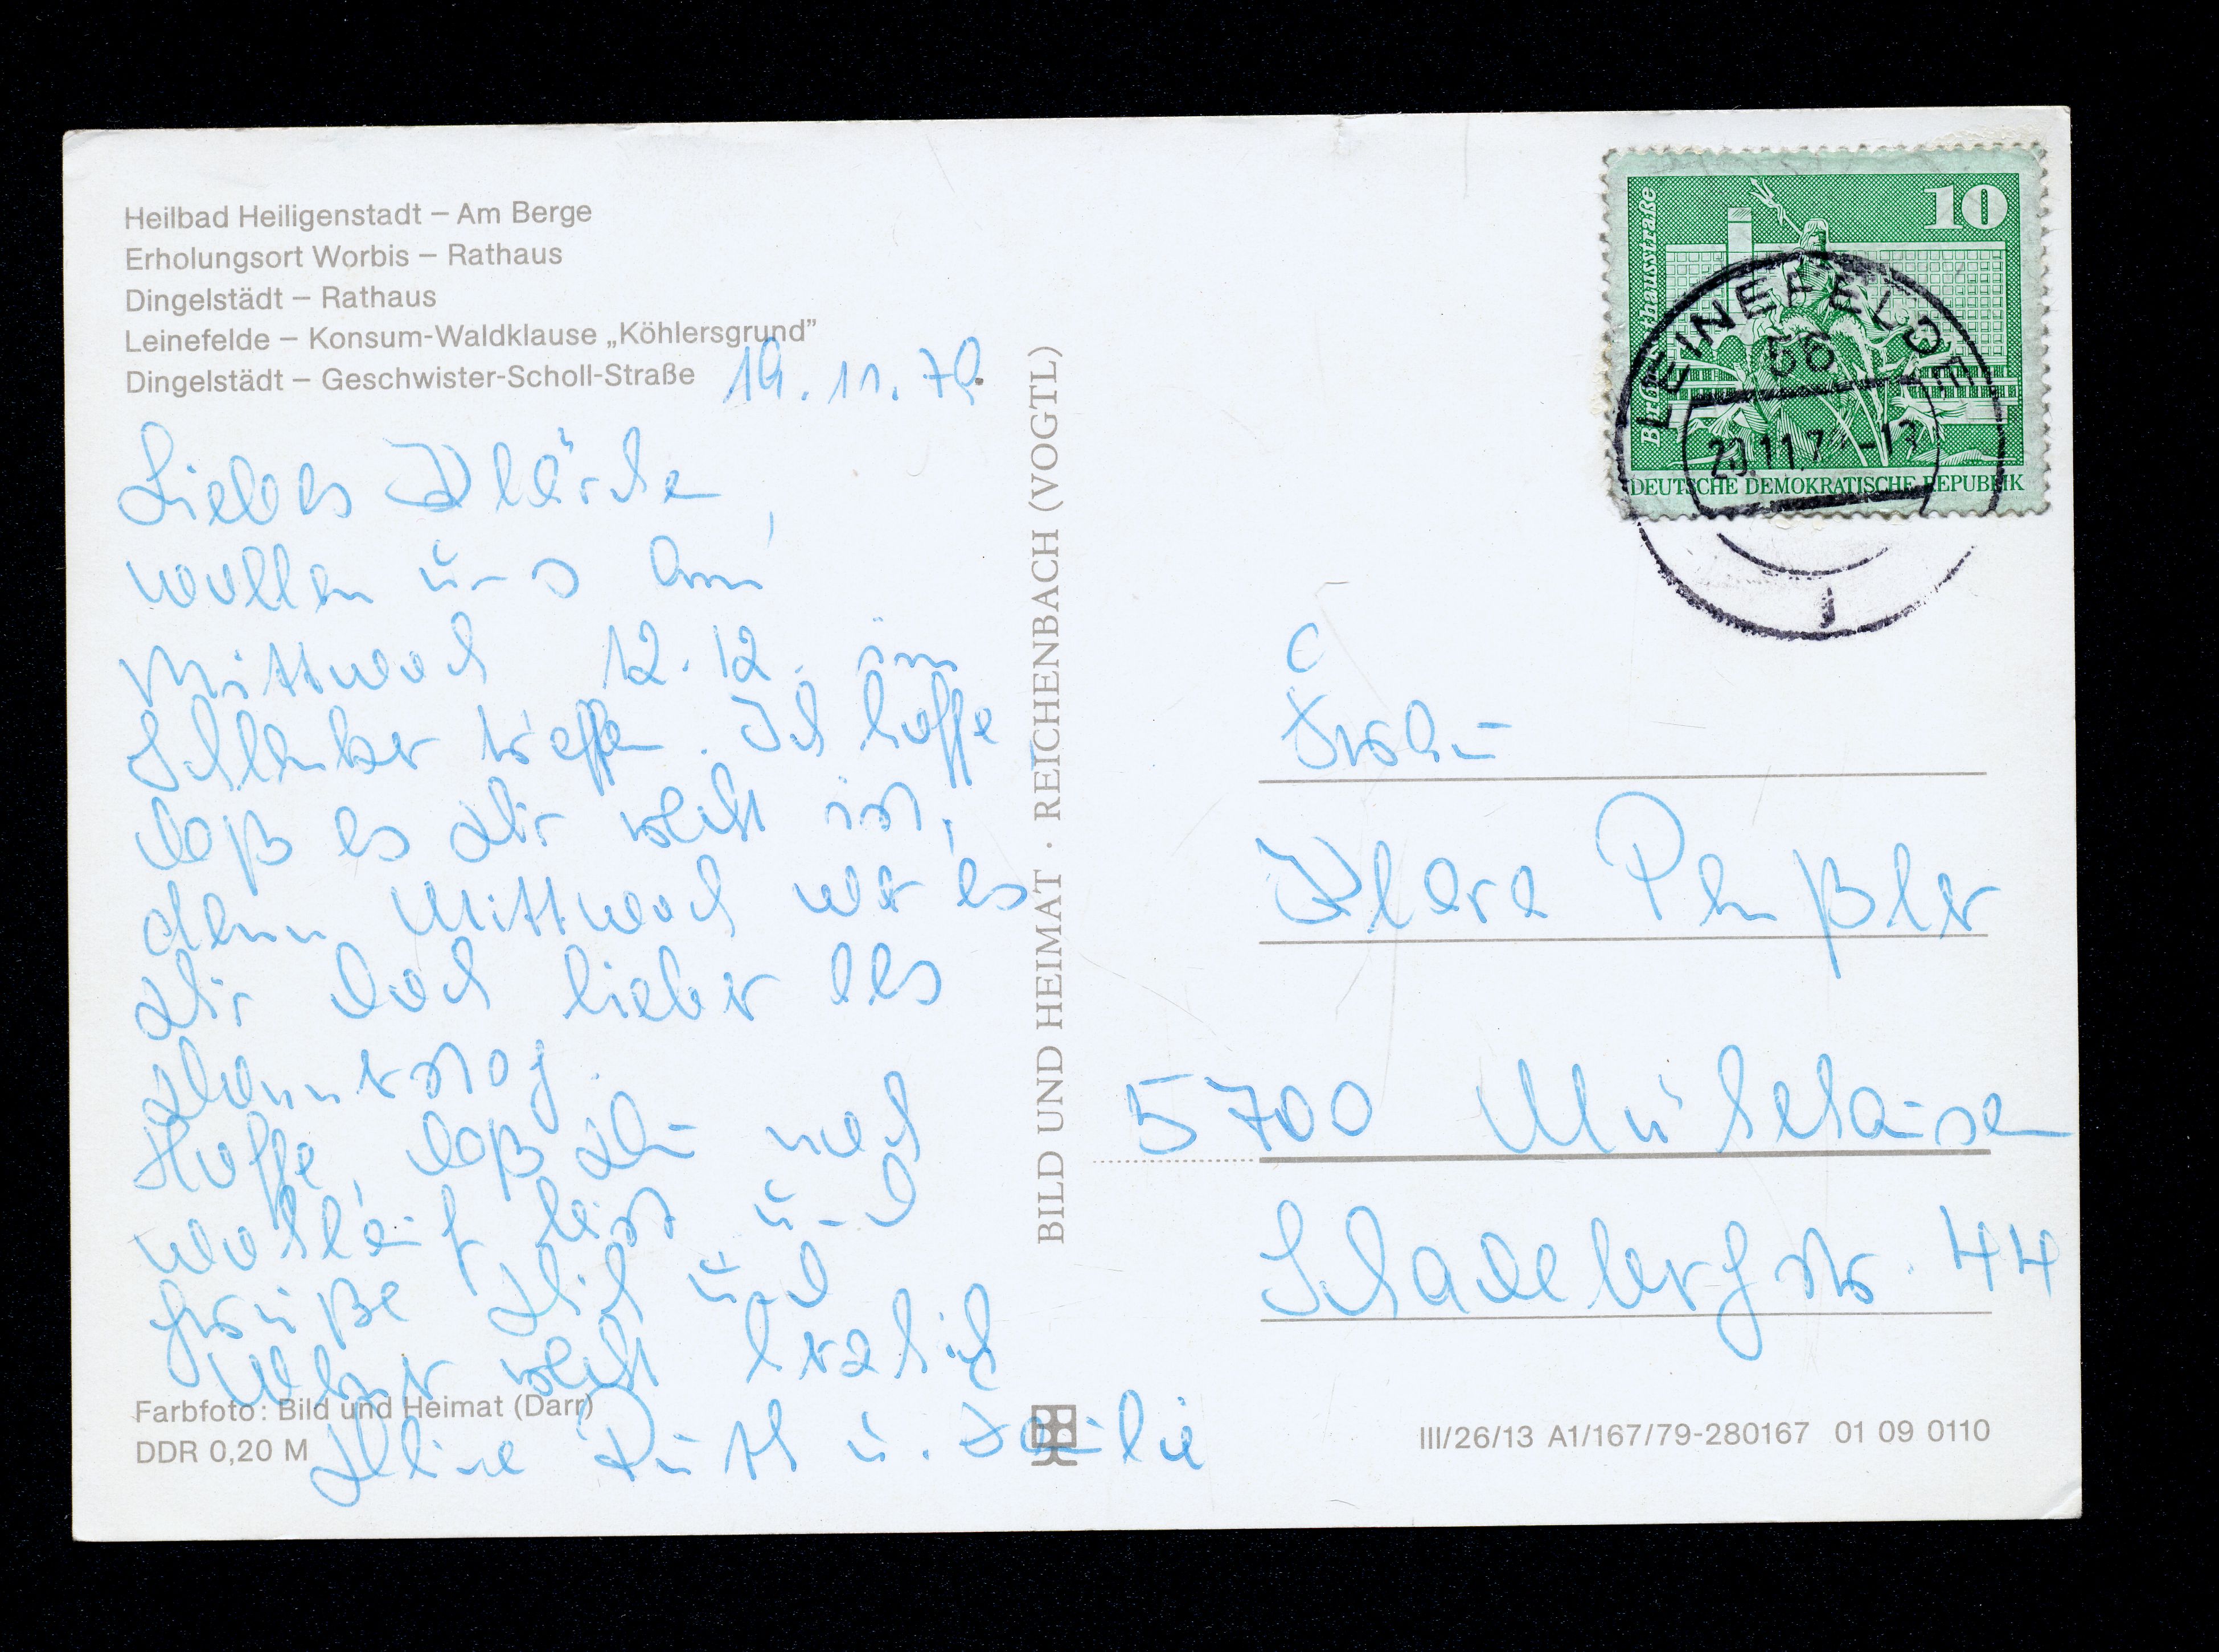 Heilbad Heiligenstadt – Am Berge
Erholungsort Worbis – Rathaus
Dingelstädt – Rathaus
Leinefelde – Konsum-Waldklause „Köhlersgrund”
Dingelstädt – Geschwister-Scholl-Straße
19.11.79.
Liebes Klärchen,
wollen uns am
Mittwoch 12.12. im
treffen. Ich hoffe
daß es Dir recht ist,
denn Mittwoch war es
Dir doch lieber als
Donnerstag.
Hoffe, daß Du noch
wohlauf bist und
grüße Dich und
recht herzlich
Deine Ruth u. Familie
Farbfoto: Bild und Heimat (Darr)
DDR 0,20 M
BILD UND HEIMAT · REICHENBACH (VOGTL)
10
DEUTSCHE DEMOKRATISCHE REPUBLIK
LEINEFELDE
56
20.11.79-13
j
Frau
Klara
5700 Mühlhausen
Schadebergstr. 44
III/26/13 A1/167/79-280167 01 09 0110